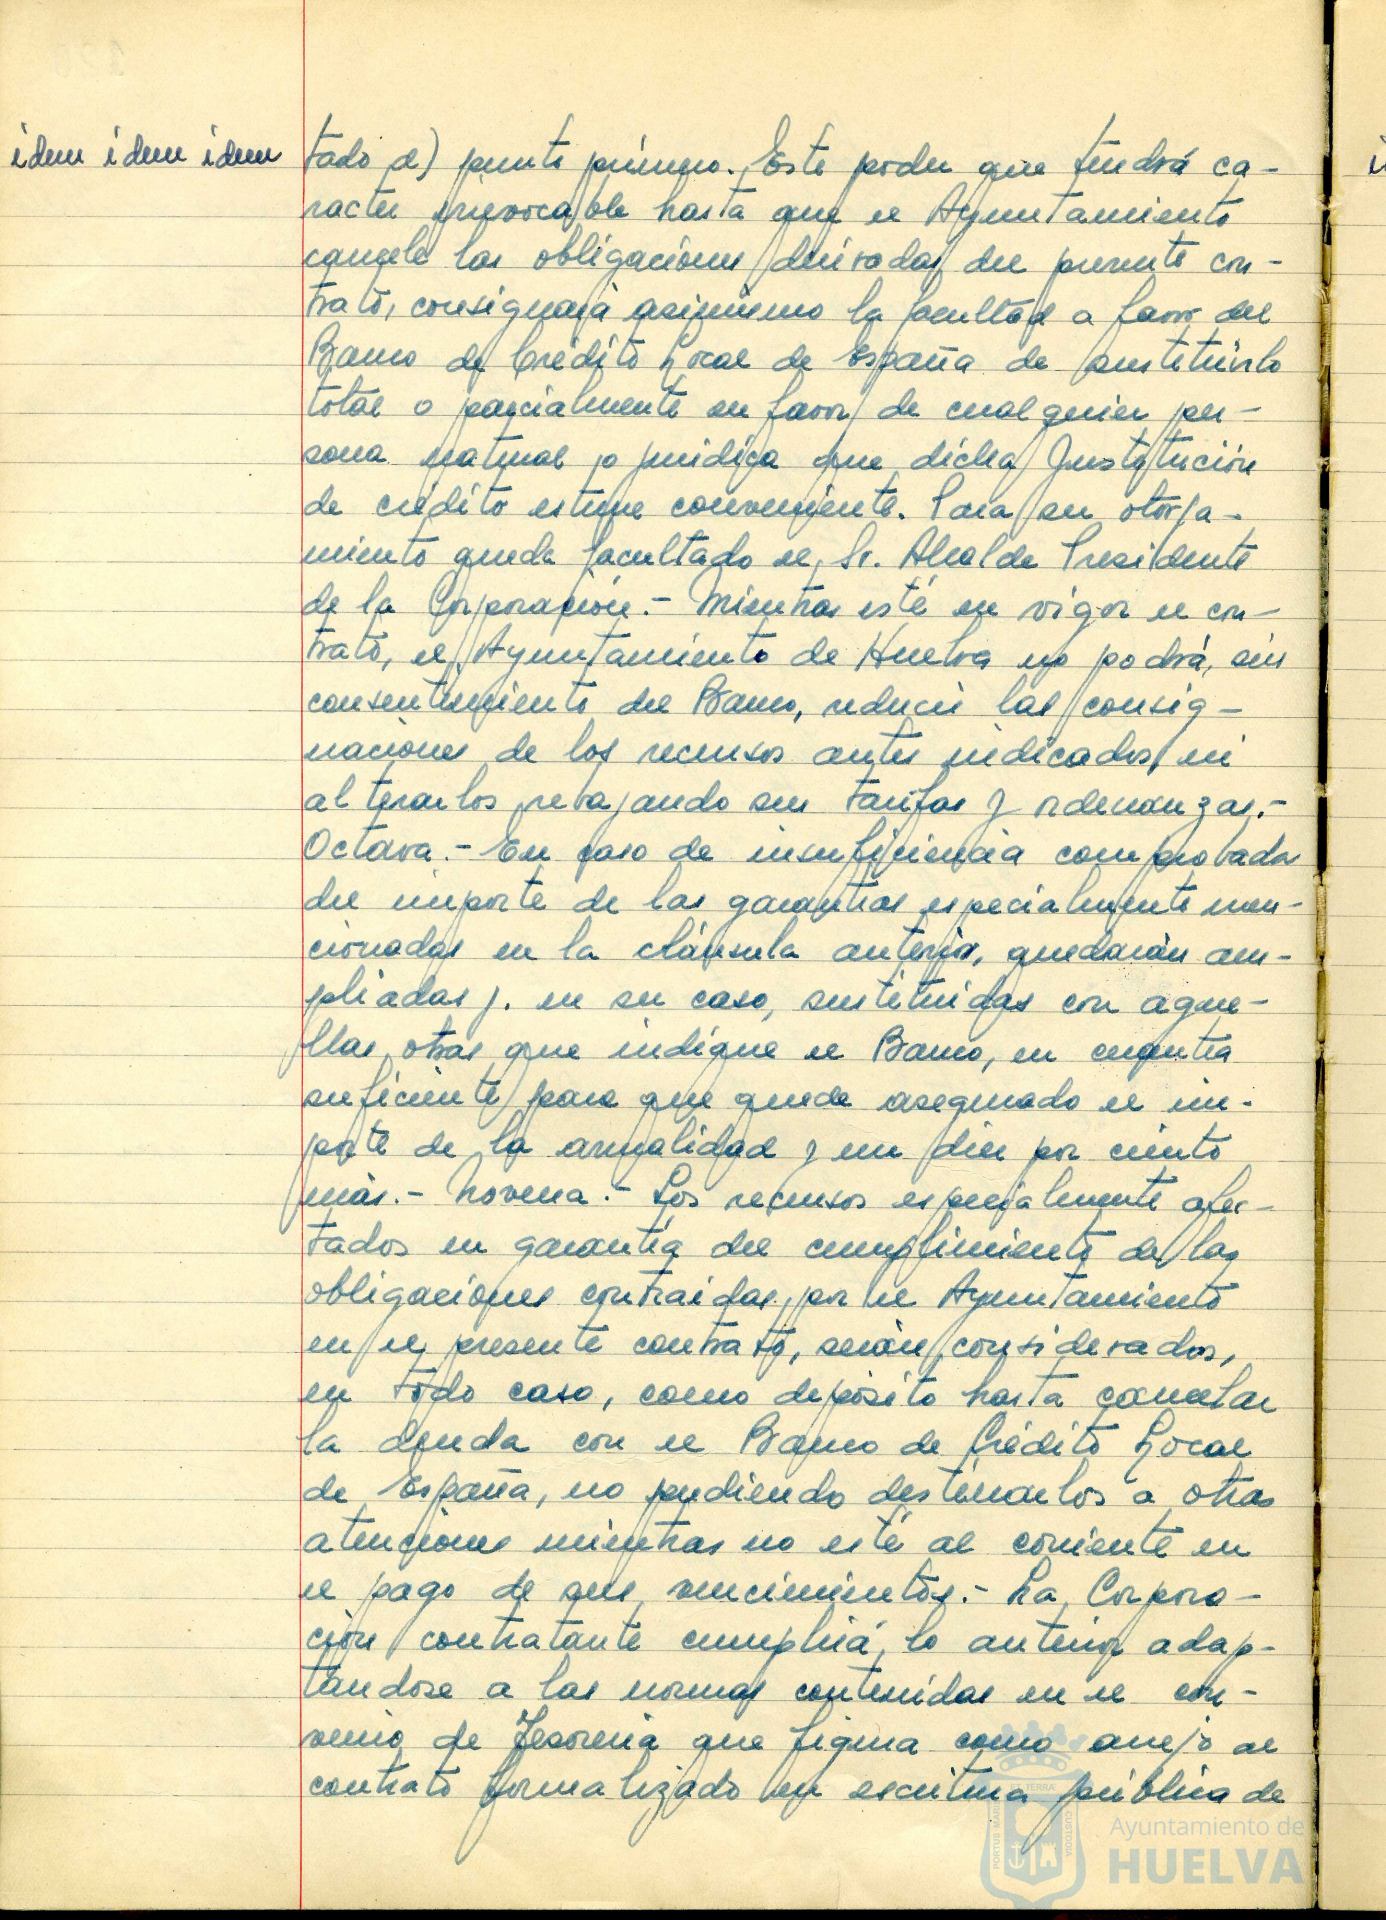 idem idem idem
tado d) punto primero. Este poder que tendrá ca-
racter irrevocable hasta que el Ayuntamiento
cancele las obligaciones derivadas del presente con-
trato, consignará asimismo la facultad a favor del
Banco de Crédito Local de España de sustituirlo
total o parcialmente en favor de cualquier per-
sona natural o juridica que dicha Institución
de crédito estime conveniente. Para su otorga-
miento queda facultado el Sr. Alcalde Presidente
de la Corporación.- Mientras esté en vigor el con-
trato, el Ayuntamiento de Huelva no podrá, sin
consentimiento del Banco, reducir las consig-
naciones de los recursos antes indicados, ni
alterarlos rebajando sus tarifas y ordenanzas.-
Octava.- En caso de insuficiencia comprobada
del importe de las garantias especialmente men-
cionadas en la cláusula anterior, quedarán am-
pliadas y. en su caso, sustituidas con aque-
llas otras que indique el Banco, en cuantia
suficiente para que quede asegurado el im-
porte de la anualidad y un diez por ciento
más.- Novena.- Los recursos especialmente afec-
tados en garantia del cumplimiento de las
obligaciones contraidas por el Ayuntamiento
en el presente contrato, serán considerados,
en todo caso, como depósito hasta cancelar
la deuda con el Banco de Crédito Local
de España, no pudiendo destinarlos a otras
atenciones mientras no esté al corriente en
el pago de sus vencimientos.- La Corpora-
ción contratante cumplirá lo anterior adap-
tandose a las normas contenidas en el con-
venio de Tesoreria que figura como anejo al
contrato formalizado en escritura pública de
PORTUS MARIS ET TERRAE CUSTODIA
Ayuntamiento de
HUELVA